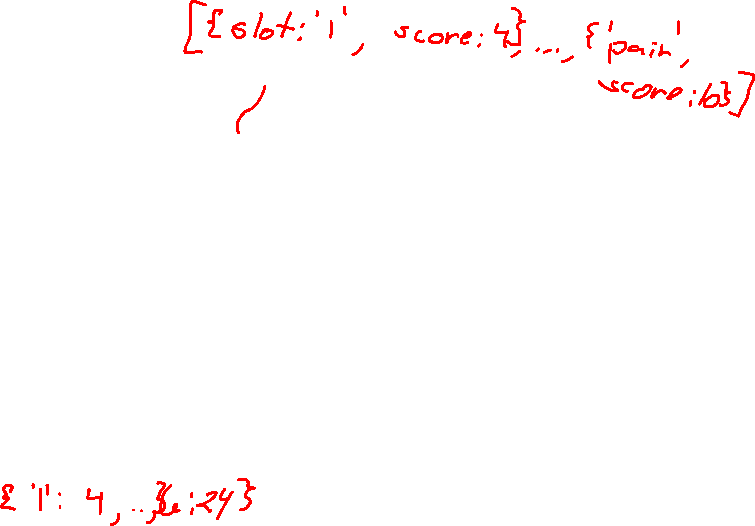 [{slot:'1', score:4},...,{'pair',
score:10}]
{'1': 4, ..,}{e:24}